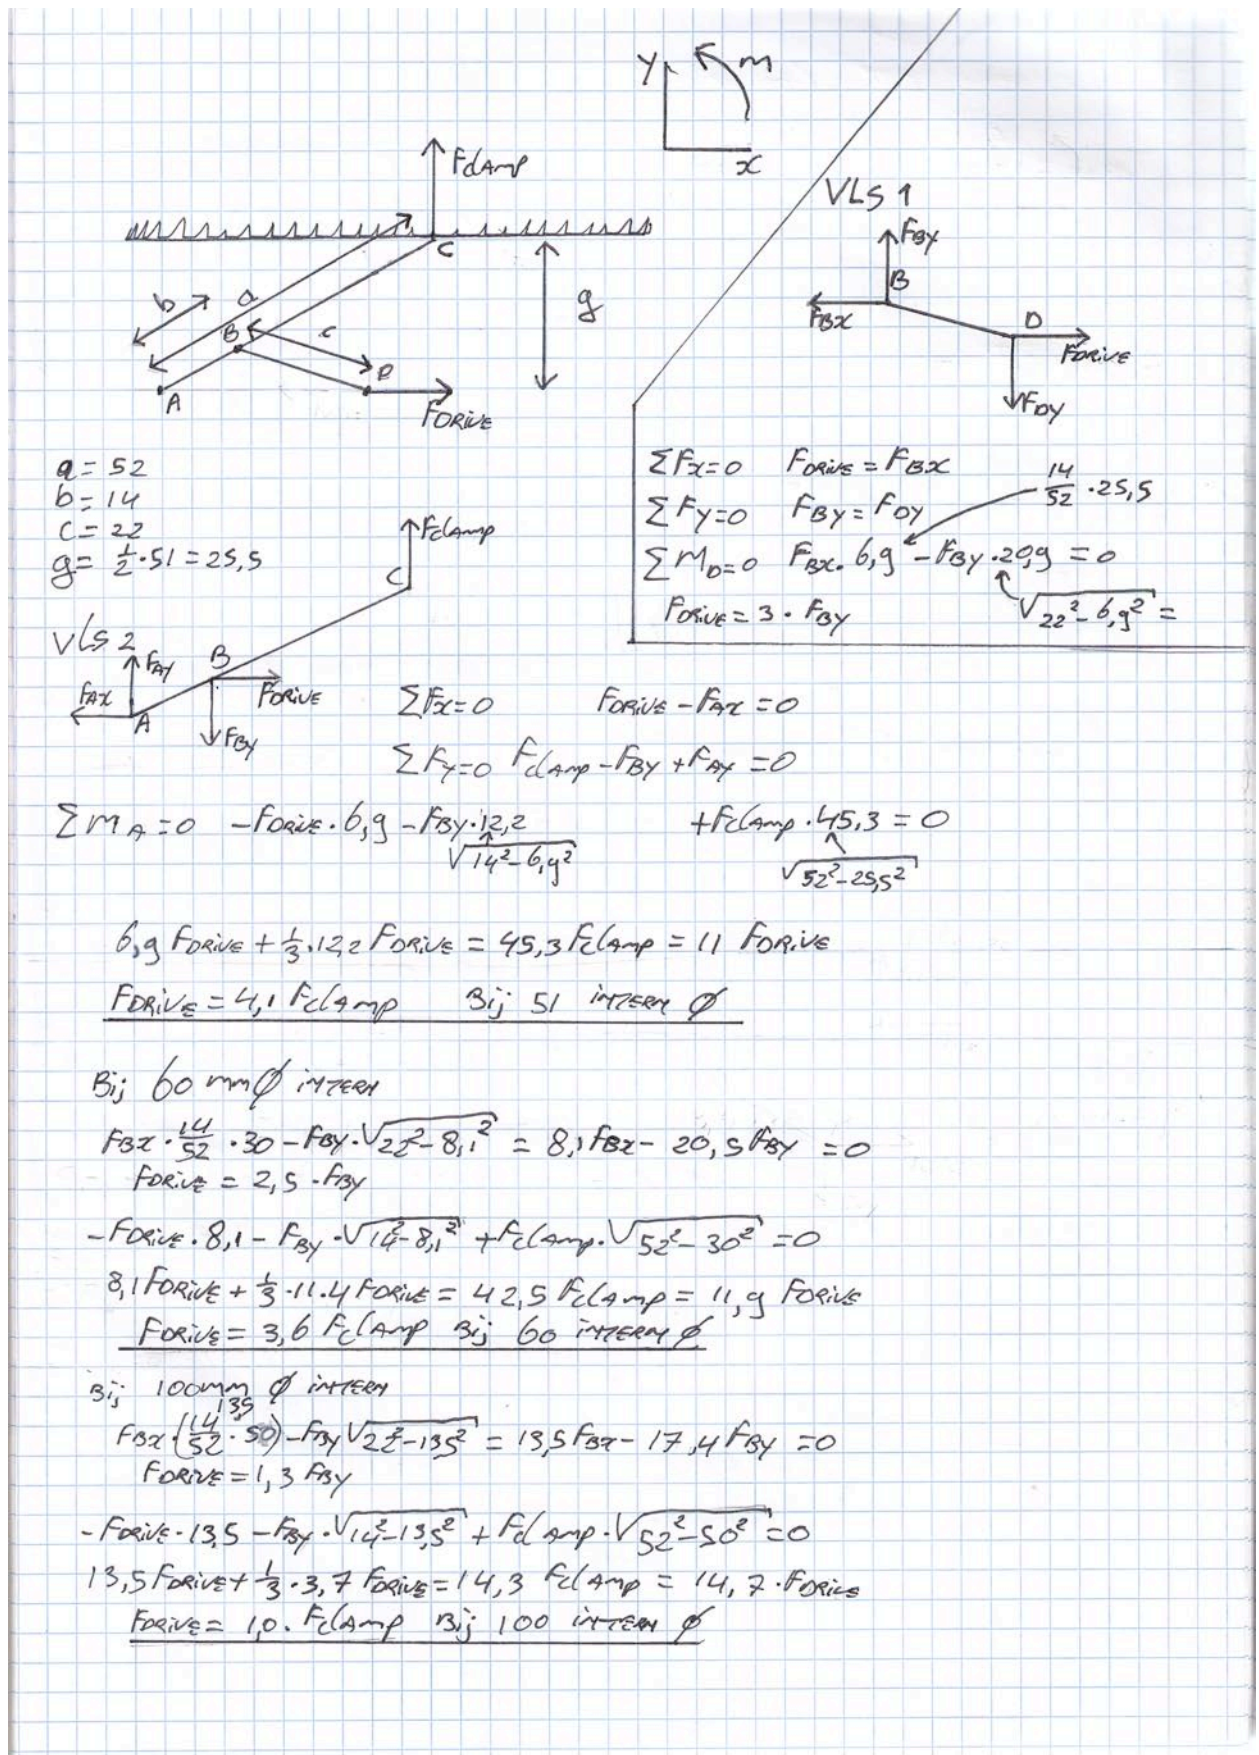 Y M
x
FclAmp
C
b a
B c g
D
A
FDRiVE
VLS 1
FBY
B
FBX D
FDRiVE
FDY
a = 52
b = 14
c = 22
g = 1/2 · 51 = 25,5
ΣFx=0 FDRiVE = FBX
14/52 · 25,5
ΣFY=0 FBY = FDY
ΣMD=0 FBX · 6,9 - FBY · 20,9 = 0
FDRiVE = 3 · FBY √(22² - 6,9²) =
FclAmp
C
VLS 2
FAY B
FAX FDRiVE
A
FBY
ΣFx=0 FDRiVE - FAX = 0
ΣFY=0 FclAmp - FBY + FAY = 0
ΣMA=0 - FDRiVE · 6,9 - FBY · 12,2 + FclAmp · 45,3 = 0
√(14² - 6,9²) √(52² - 25,5²)
6,9 FDRiVE + 1/3 · 12,2 FDRiVE = 45,3 FclAmp = 11 FDRiVE
FDRiVE = 4,1 FclAmp Bij 51 iNTERN Ø
Bij 60 mm Ø iNTERN
FBX · 14/52 · 30 - FBY · √(22² - 8,1²) = 8,1 FBX - 20,5 FBY = 0
FDRiVE = 2,5 · FBY
- FDRiVE · 8,1 - FBY · √(14² - 8,1²) + FclAmp · √(52² - 30²) = 0
8,1 FDRiVE + 1/3 · 11.4 FDRiVE = 42,5 FclAmp = 11,9 FDRiVE
FDRiVE = 3,6 FclAmp Bij 60 iNTERN Ø
Bij 100mm Ø iNTERN
13,5
FBX · (14/52 · 50) - FBY √(22² - 13,5²) = 13,5 FBX - 17,4 FBY = 0
FDRiVE = 1,3 FBY
- FDRiVE · 13,5 - FBY · √(14² - 13,5²) + FclAmp · √(52² - 50²) = 0
13,5 FDRiVE + 1/3 · 3,7 FDRiVE = 14,3 FclAmp = 14,7 · FDRiVE
FDRiVE = 1,0 · FclAmp Bij 100 iNTERN Ø